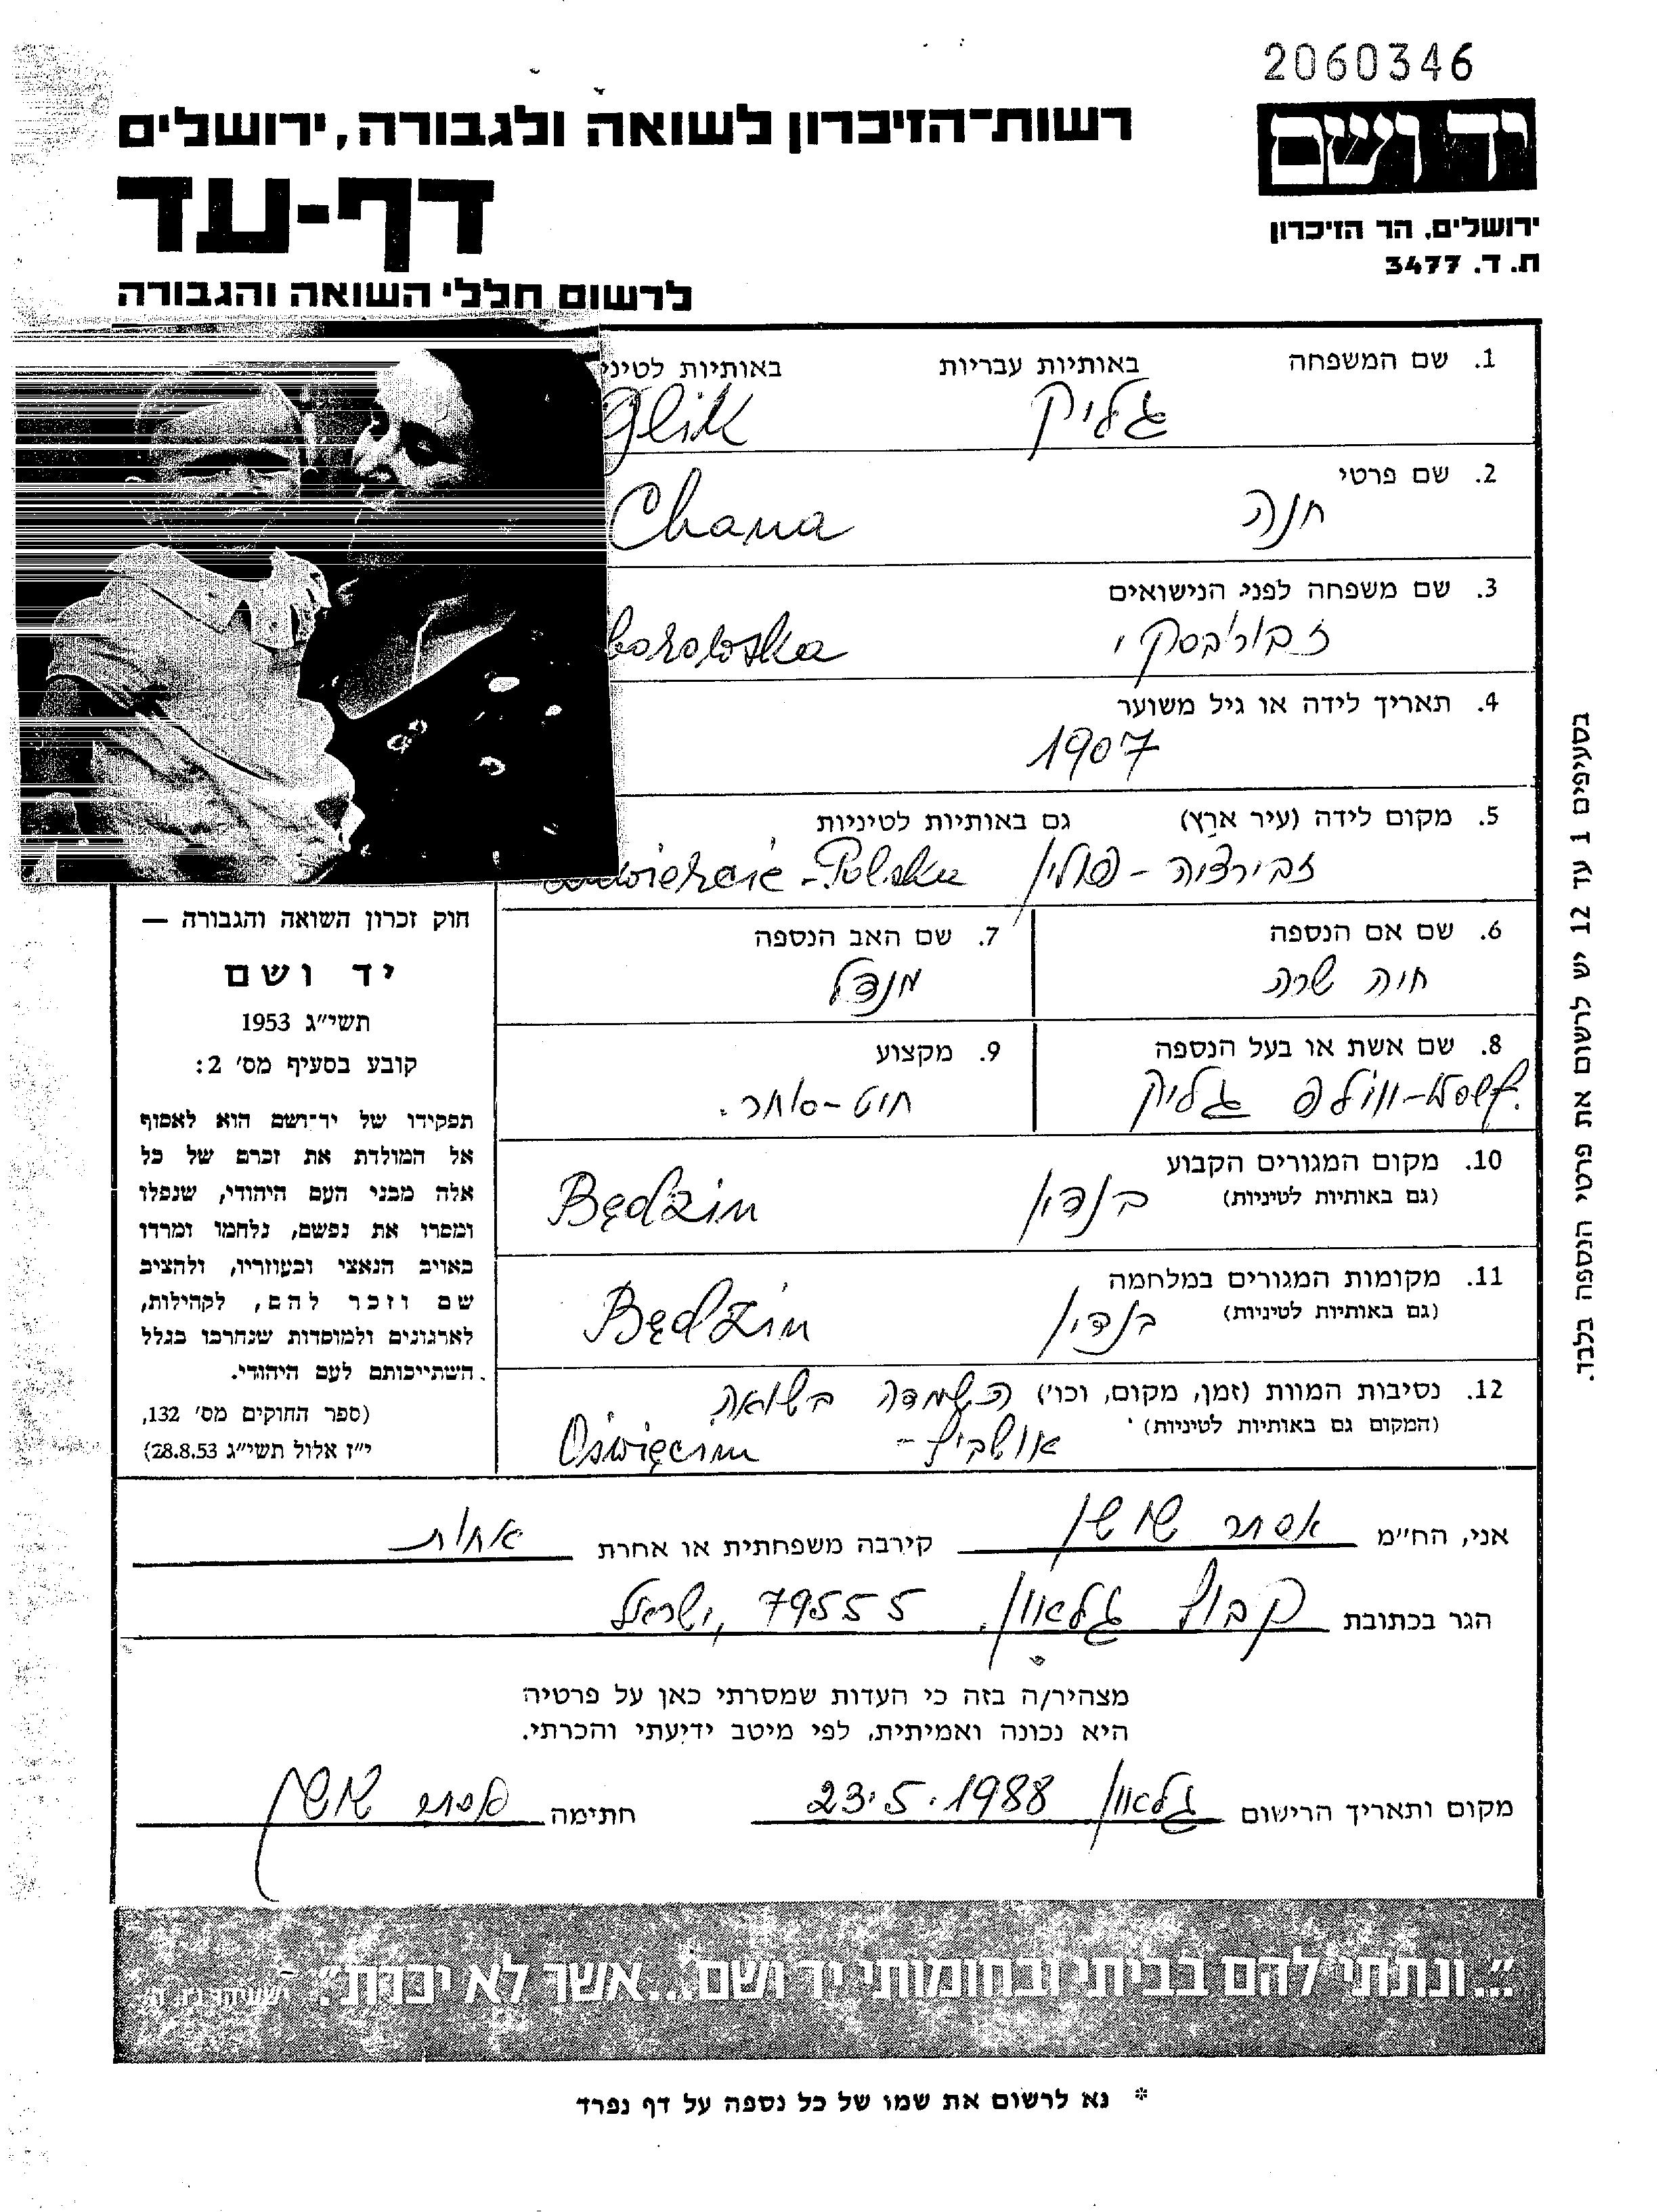 2060346
יד ושם
ירושלים, הר הזיכרון
ת. ד. 3477
רשות־הזיכרון לשואה ולגבורה, ירושלים
דף-עד
לרשום חללי השואה והגבורה
1. שם המשפחה באותיות עבריות באותיות לטיני
גליק Glik
2. שם פרטי
חנה Chana
3. שם משפחה לפני הנישואים
זבורובסקי
4. תאריך לידה או גיל משוער
1907
5. מקום לידה (עיר ארץ) גם באותיות לטיניות
זבירצ'ה - פולין - Polska
6. שם אם הנספה
חיה שרה
7. שם האב הנספה
מנדל
8. שם אשת או בעל הנספה
וולף - Wolf גליק
9. מקצוע
חוט-סוחר.
10. מקום המגורים הקבוע
(גם באותיות לטיניות)
בנדין Będzin
11. מקומות המגורים במלחמה
(גם באותיות לטיניות)
בנדין Będzin
12. נסיבות המוות (זמן, מקום, וכו') השמדה בשואה
(המקום גם באותיות לטיניות)
אושביץ - Oświęcim
חוק זכרון השואה והגבורה —
יד ושם
תשי"ג 1953
קובע בסעיף מס' 2:
תפקידו של יד־ושם הוא לאסוף
אל המולדת את זכרם של כל
אלה מבני העם היהודי, שנפלו
ומסרו את נפשם, נלחמו ומרדו
באויב הנאצי ובעוזריו, ולהציב
שם וזכר להם, לקהילות,
לארגונים ולמוסדות שנחרבו בגלל
השתייכותם לעם היהודי.
(ספר החוקים מס' 132,
י"ז אלול תשי"ג 28.8.53)
בסעיפים 1 עד 12 יש לרשום את פרטי הנספה בלבד.
אני, הח"מ אסתר שושן קירבה משפחתית או אחרת אחות
הגר בכתובת קבוץ גלאון, 79555, ישראל
מצהיר/ה בזה כי העדות שמסרתי כאן על פרטיה
היא נכונה ואמיתית, לפי מיטב ידיעתי והכרתי.
מקום ותאריך הרישום גלאון 23.5.1988 חתימה אסתר שושן
"...ונתתי להם בביתי ובחומותי יד ושם...אשר לא יכרת". ישעיהו נו, ה'
* נא לרשום את שמו של כל נספה על דף נפרד